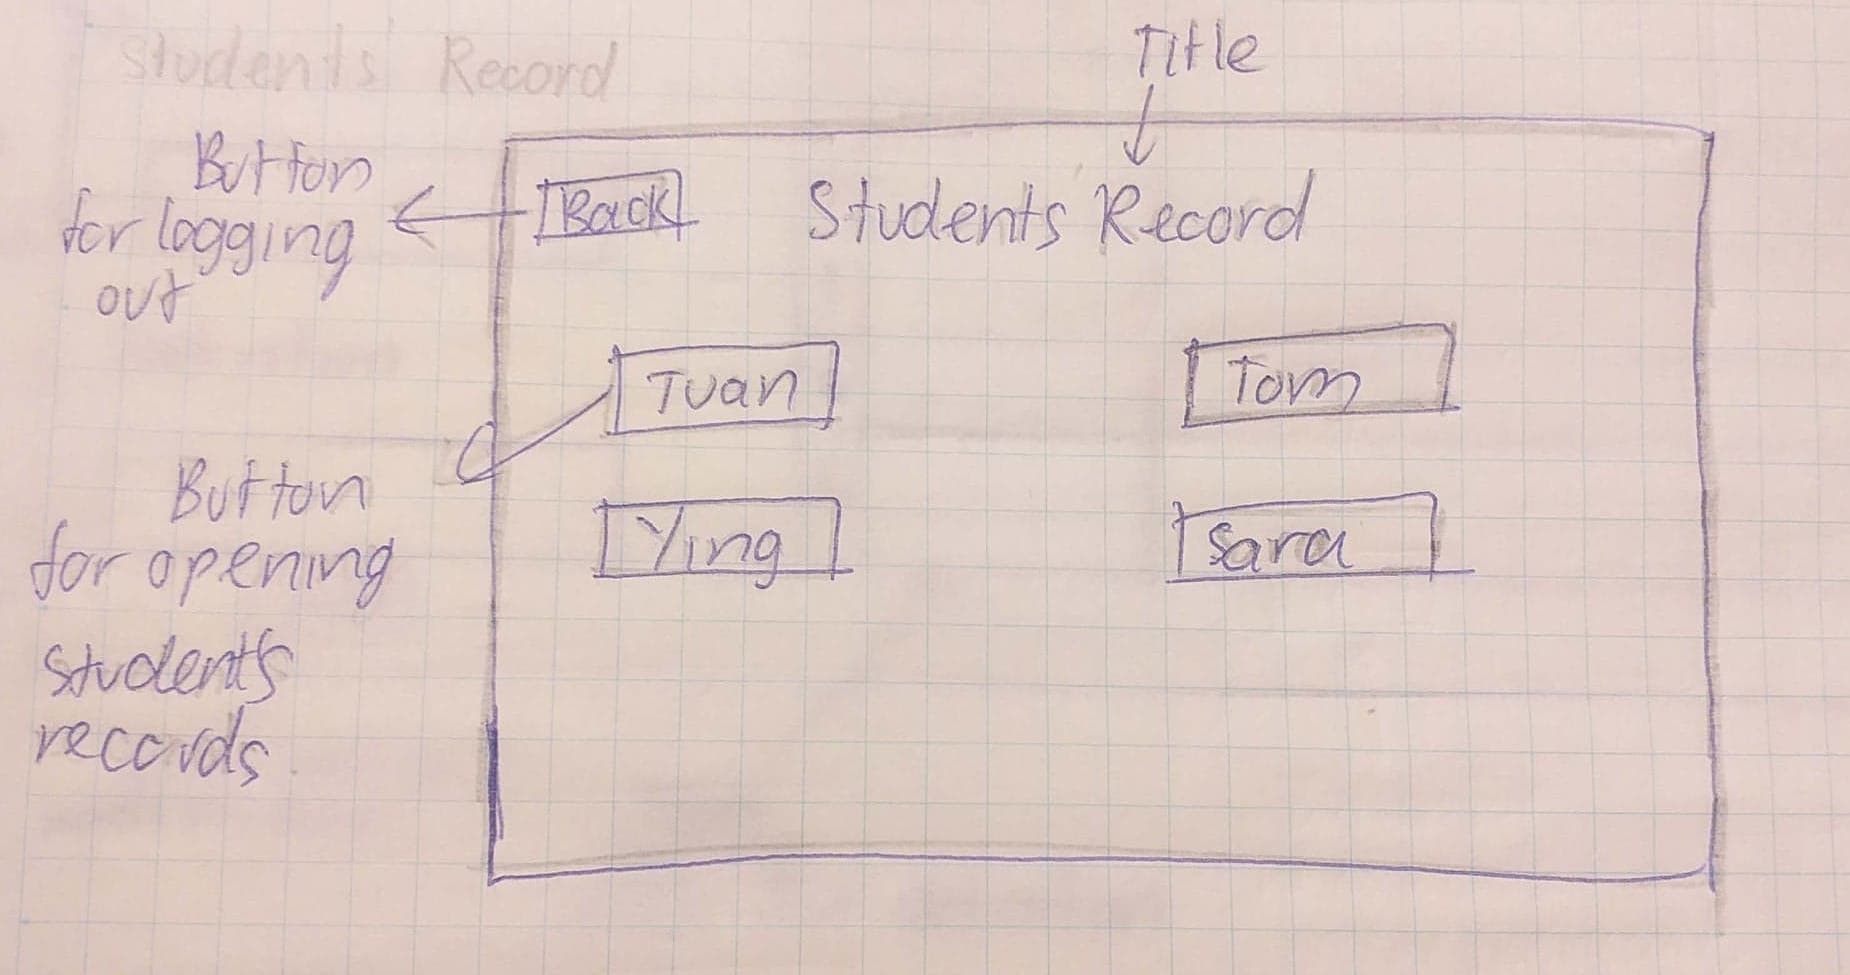 Students' Record
Title
Button
for logging
out
Back
Students' Record
Tuan
Tom
Button
for opening
student's
records
Ying
Sara